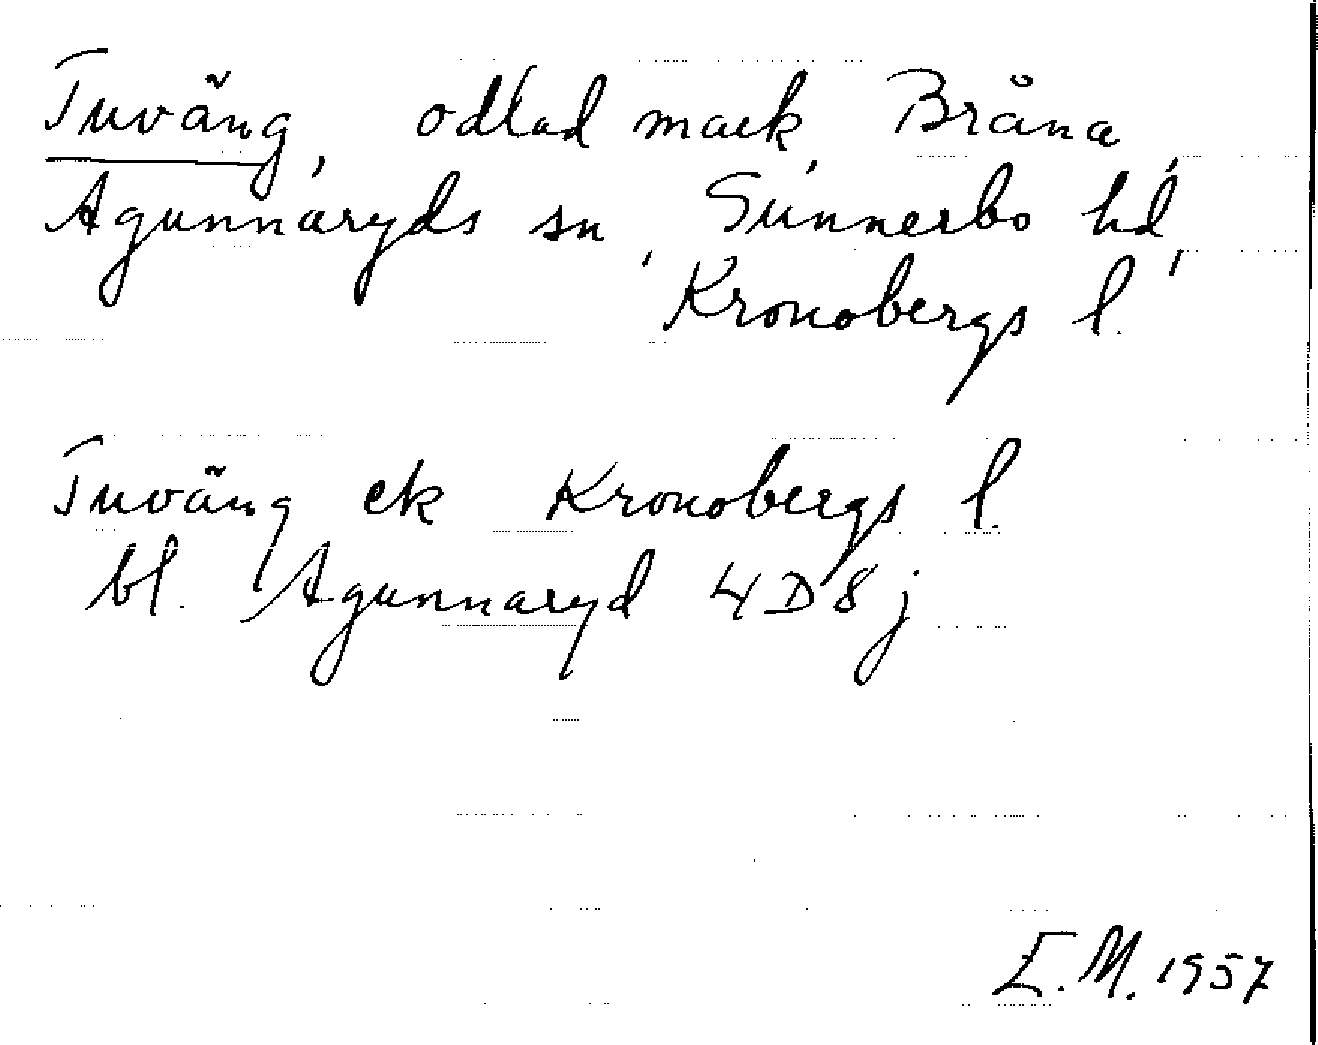 Tuväng, odlad mark, Bråna,
Agunnaryds sn, Sunnerbo hd,
Kronobergs l.
Tuväng ek Kronobergs l.
bl. Agunnaryd 4D8j
E.M. 1957